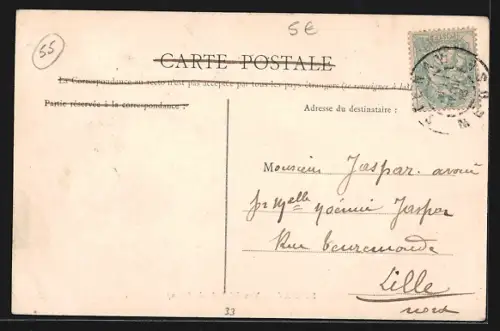 55
5€
CARTE POSTALE
La Correspondance au recto n'est pas acceptée par tous les pays étrangers (se renseigner à la
Partie réservée à la correspondance :
Adresse du destinataire :
Monsieur Jaspar avoué
pr Melle Noémie Jaspar
Rue Tenremonde
Lille
Nord
33